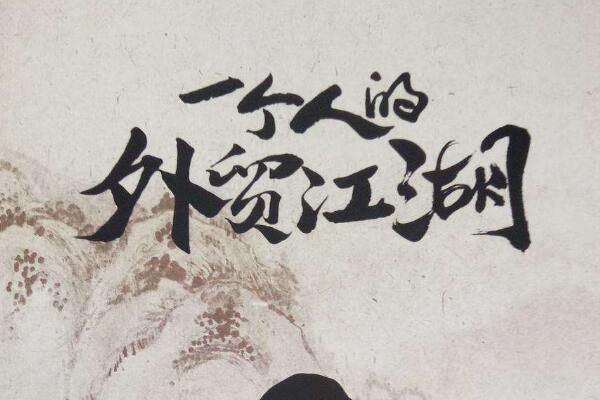 一个人的
外贸江湖